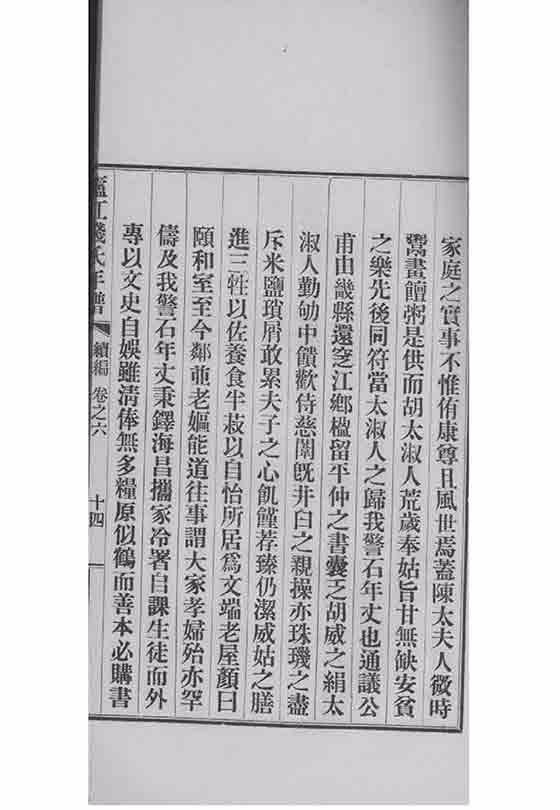 家庭之實事不惟侑康尊且風世焉蓋陳太夫人微時
鬻畫饘粥是供而胡太淑人荒歲奉姑旨甘無缺安貧
之樂先後同符當太淑人之歸我警石年丈也通議公
甫由畿縣還窆江鄉楹留平仲之書囊乏胡威之絹太
淑人勤劬中饋歡侍慈闈旣井臼之親操亦珠璣之盡
斥米鹽瑣屑敢累夫子之心飢饉荐臻仍潔威姑之膳
進三牲以佐養食半菽以自怡所居爲文端老屋顏曰
頤和室至今鄰亟老嫗能道往事謂大家孝婦殆亦罕
儔及我警石年丈秉鐸海昌攜家冷署自課生徒而外
專以文史自娛雖清俸無多糧原似鶴而善本必購書
錢氏年譜 續編 卷之六 十四